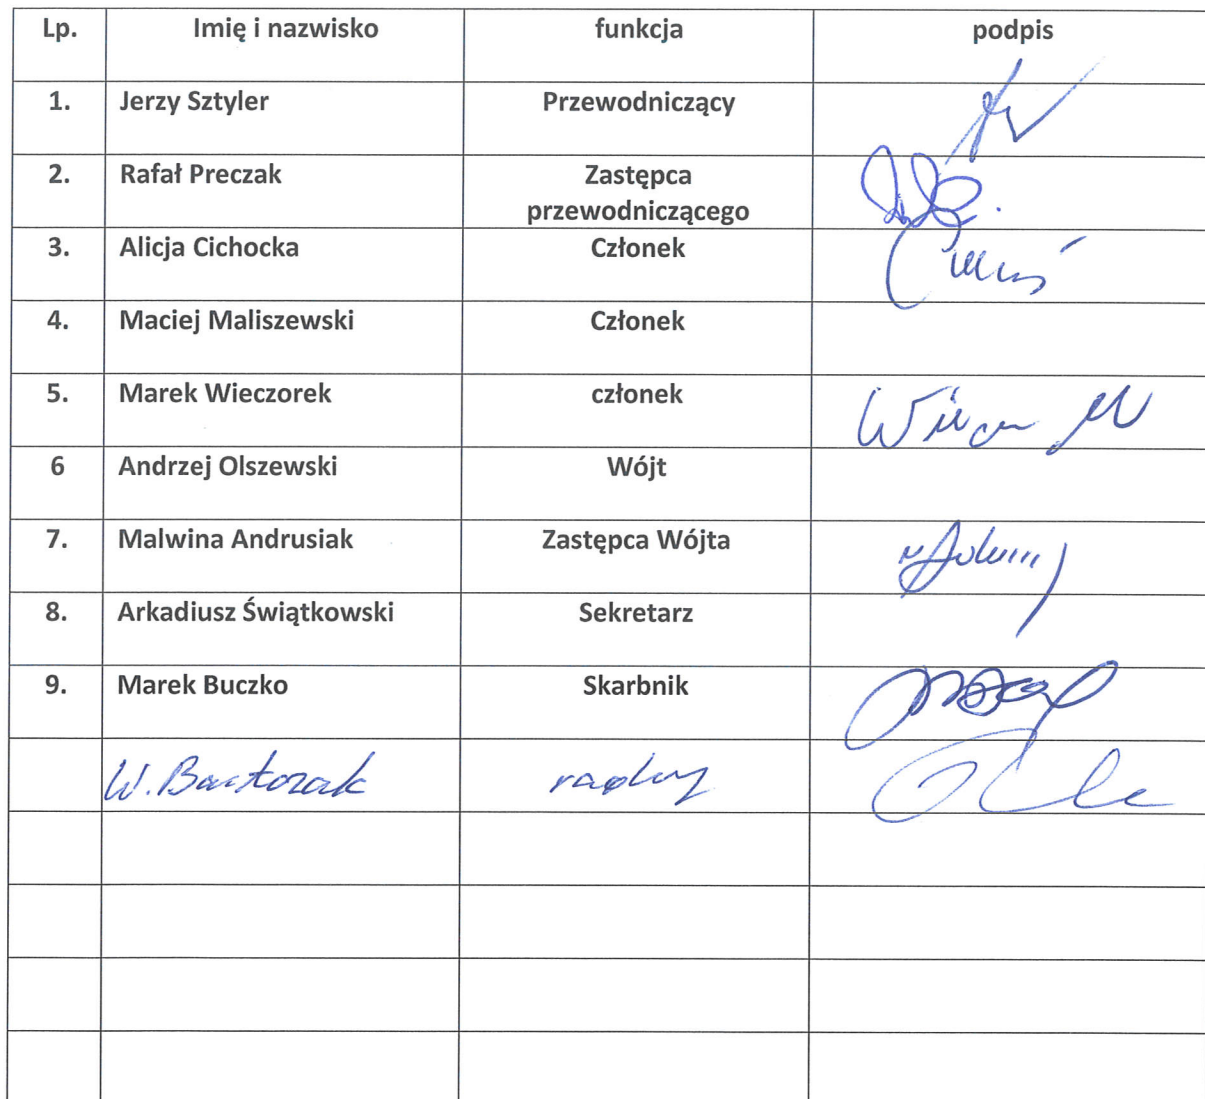 Lp. Imię i nazwisko funkcja podpis
1. Jerzy Sztyler Przewodniczący
2. Rafał Preczak Zastępca
przewodniczącego
3. Alicja Cichocka Członek
4. Maciej Maliszewski Członek
5. Marek Wieczorek członek
6 Andrzej Olszewski Wójt
7. Malwina Andrusiak Zastępca Wójta
8. Arkadiusz Świątkowski Sekretarz
9. Marek Buczko Skarbnik
W. Bartczak radny